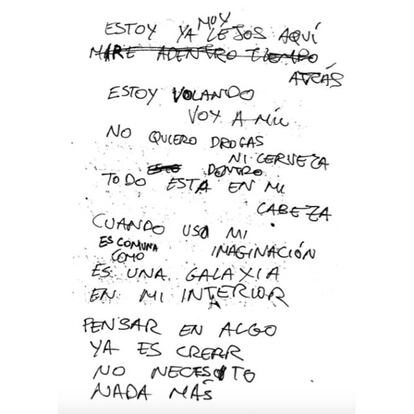 ESTOY YA MUY LEJOS AQUÍ
MIRE ADENTRO TIEMPO
ATRÁS
ESTOY VOLANDO
VOY A MIL
NO QUIERO DROGAS
NI CERVEZA
DENTRO
TODO ESTA EN MI
CABEZA
CUANDO USO MI
IMAGINACIÓN
ES COMUNA
COMO
ES UNA GALAXIA
EN MI INTERIOR
PENSAR EN ALGO
YA ES CREER
NO NECESITO
NADA MÁS